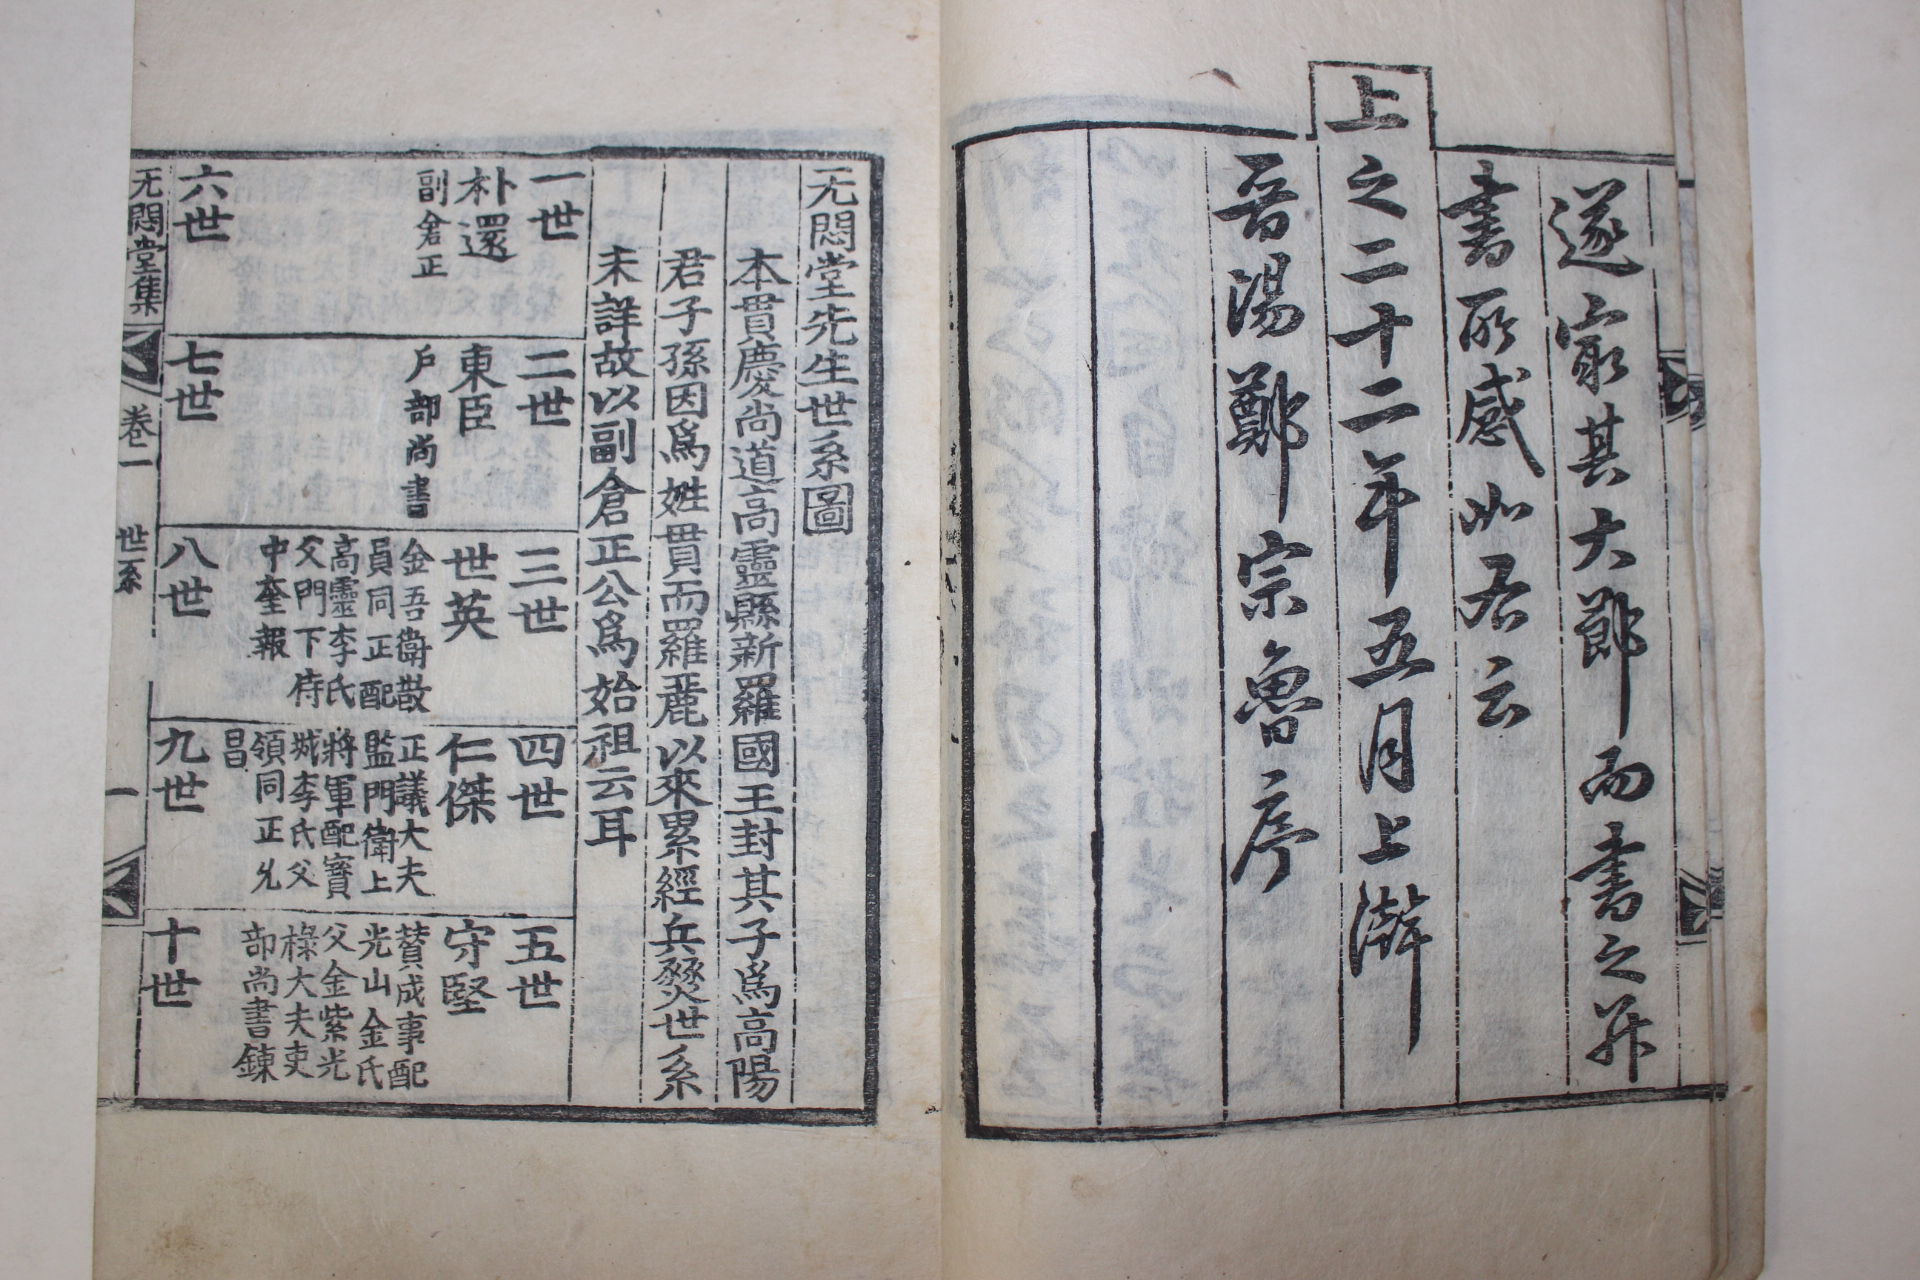 遂家其大郞而書之幷
書所感如右云
上之二十二年五月上澣
晉陽鄭宗魯序
无悶堂先生世系圖
本貫慶尙道高靈縣新羅國王封其子爲高陽
君子孫因爲姓貫而羅麗以來累經兵燹世系
未詳故以副倉正公爲始祖云耳
一世
朴還
副倉正
二世
東臣
戶部尙書
三世
世英
金吾衛散
員同正配
高靈李氏
父門下侍
中奎報
四世
仁傑
正議大夫
監門衛上
將軍配寶
城李氏父
領同正允
昌
五世
守堅
贊成事配
光山金氏
父金紫光
祿大夫吏
部尙書鍊
六世
七世
八世
九世
十世
无悶堂集
卷一
世系
一